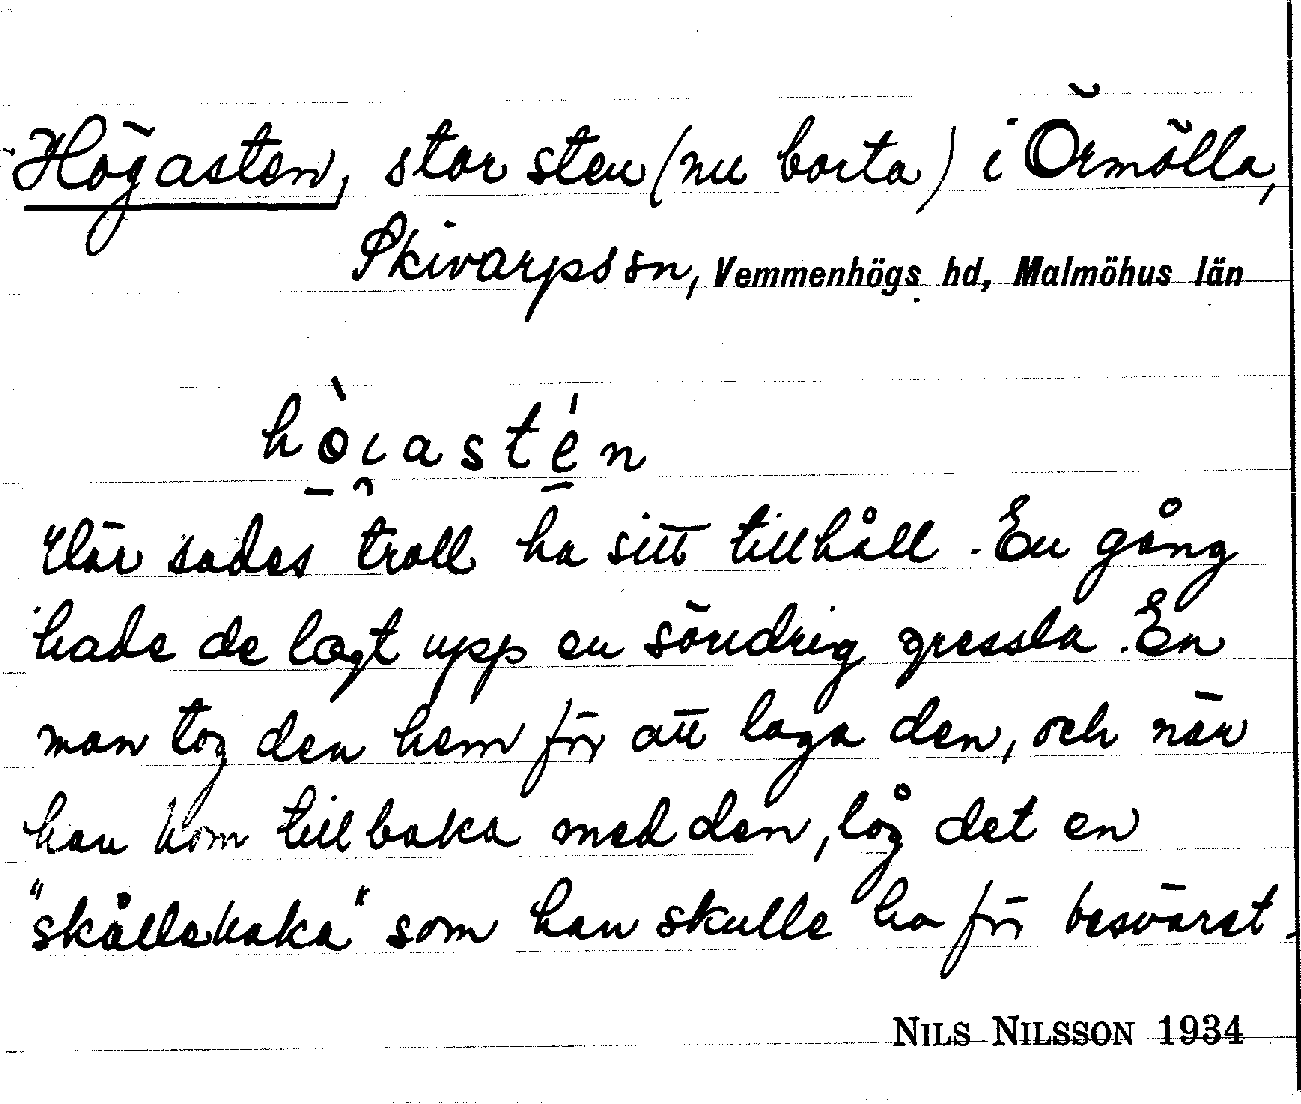 Högasten, stor sten (nu borta) i Örmölla,
Skivarps sn, Vemmenhögs hd, Malmöhus län
hòi̯astén
Här sades troll ha sitt tillhåll. En gång
hade de lagt upp en söndrig gressla. En
man tog den hem för att laga den, och när
han kom tillbaka med den, låg det en
"skållekaka" som han skulle ha för besväret.
NILS NILSSON 1934